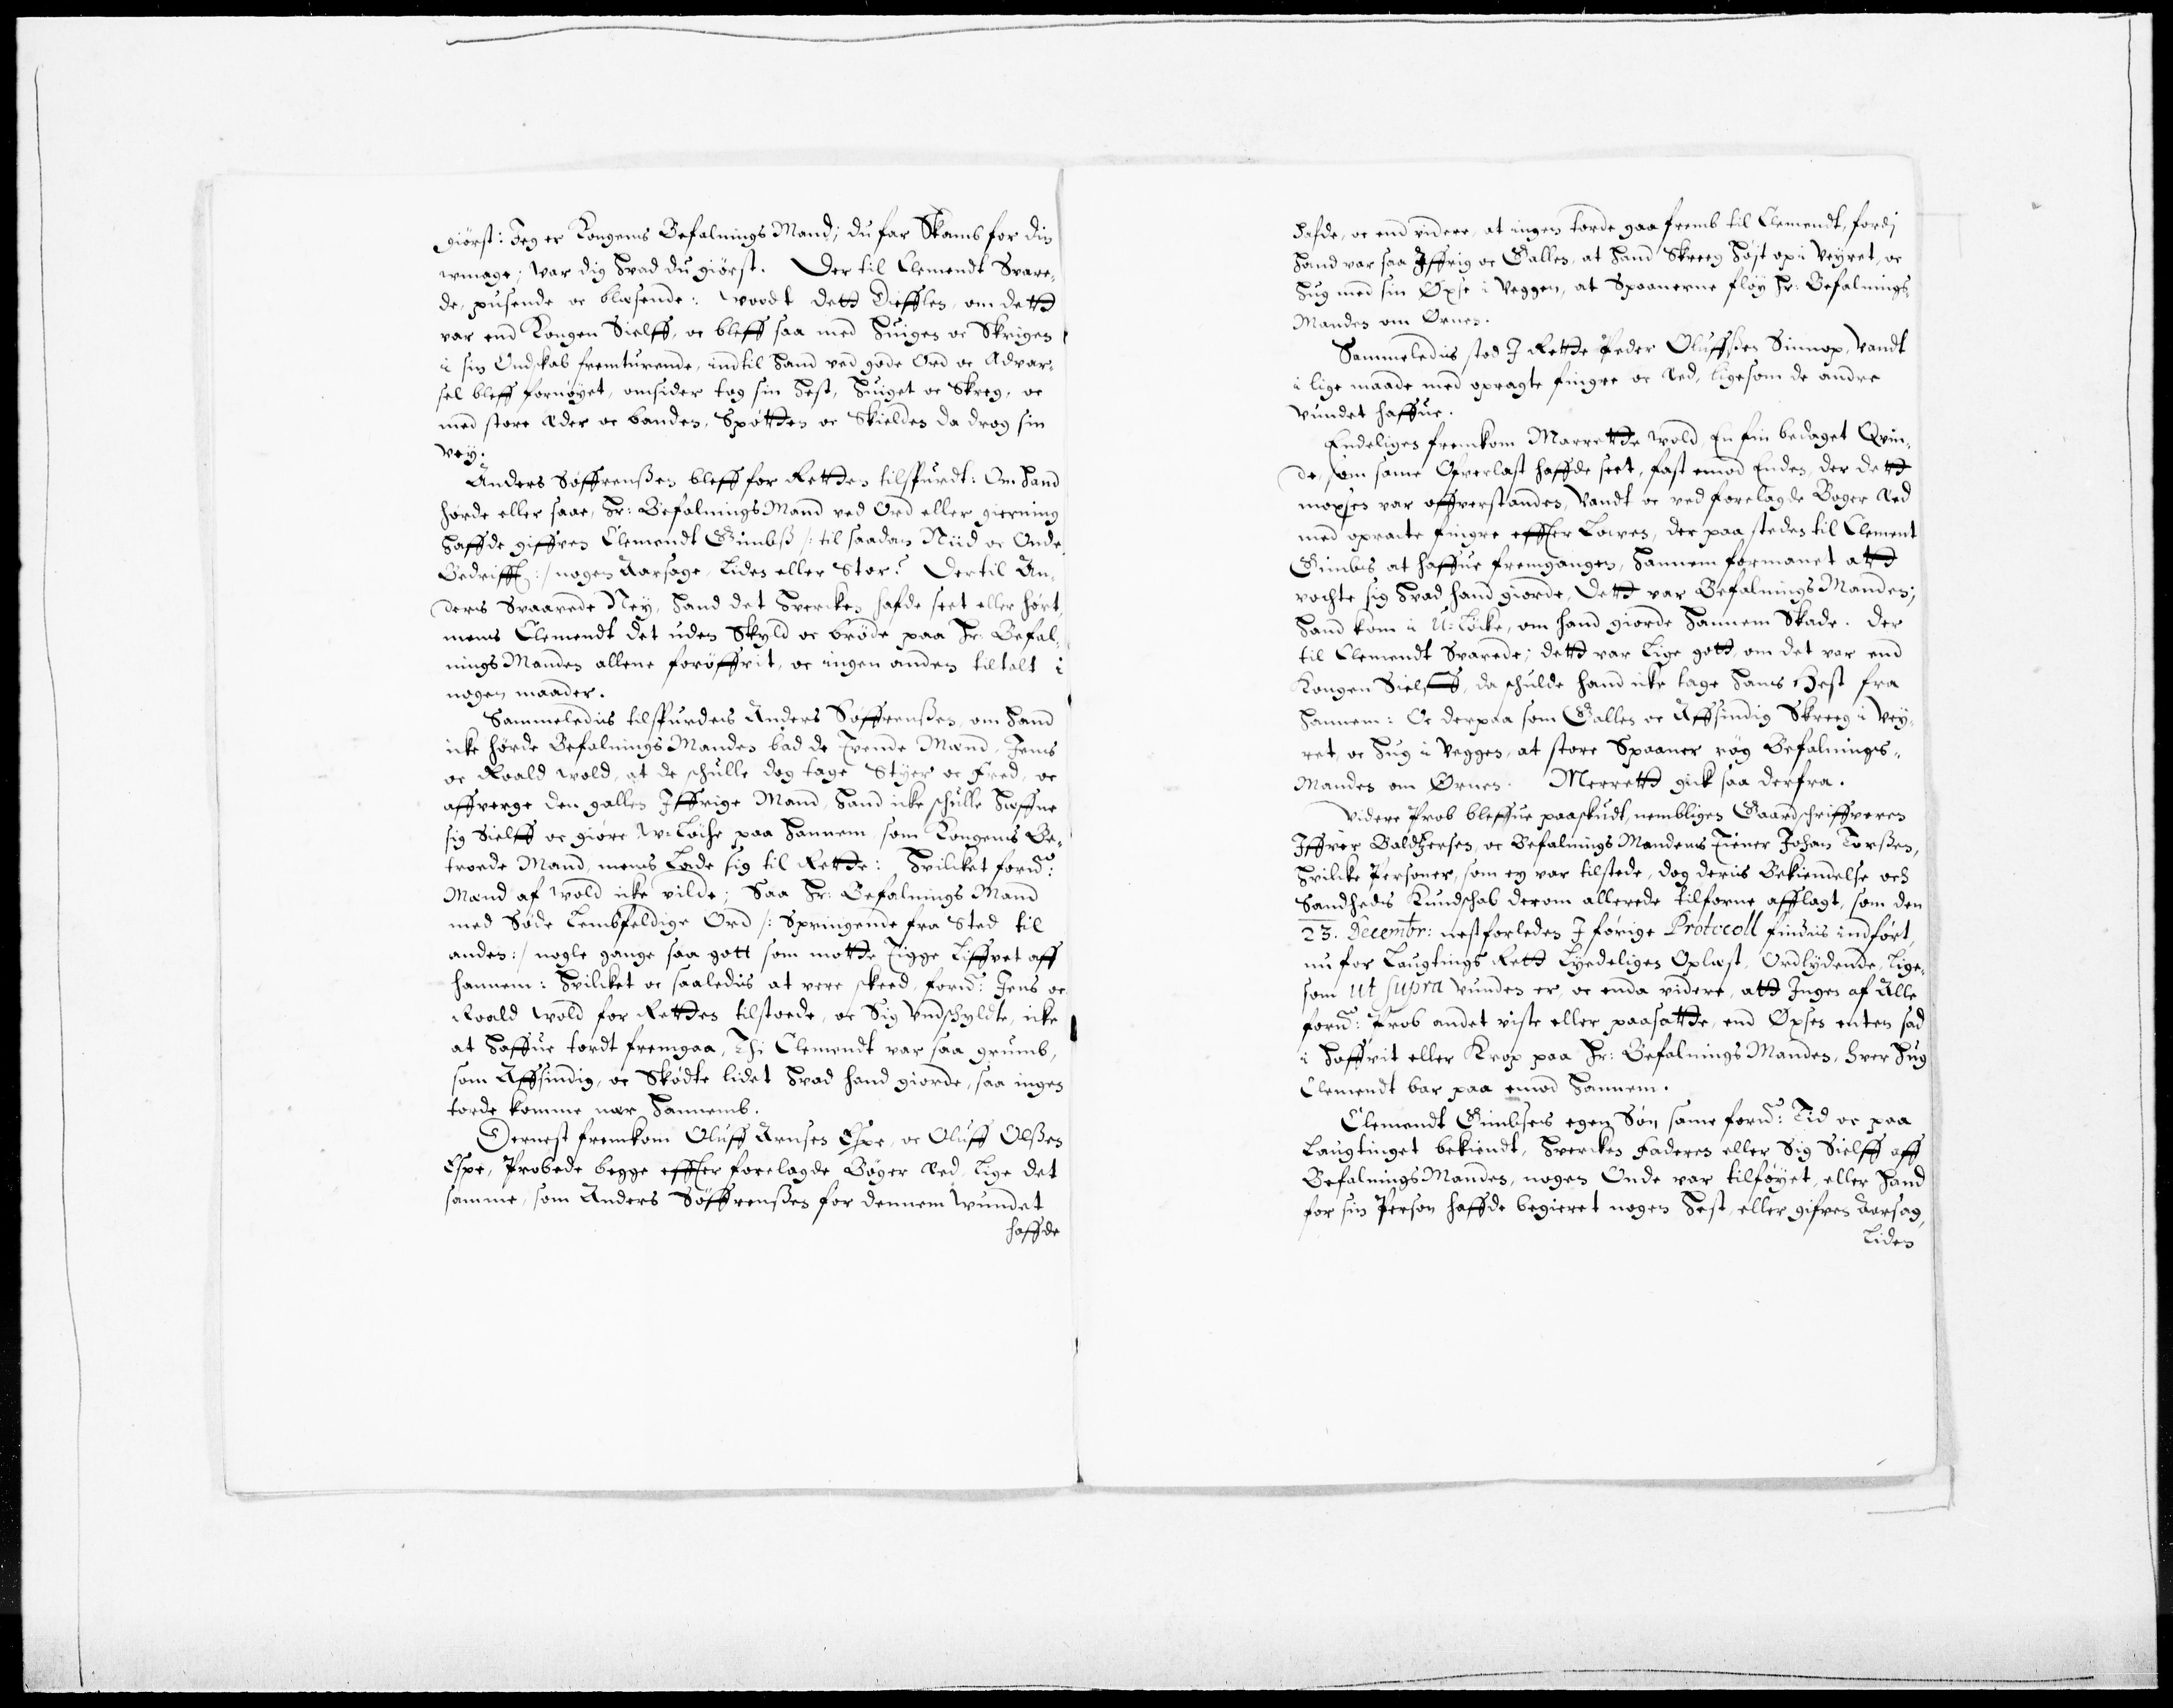 giørst: Jeg er Kongens Befalnings Mand; du far Skamb for din
wmage; war dig hvad du giørst. Der til Clemendt Svare¬
de, pusende oc blæsende: woodt dett Dieffles, om dett
var end Kongen Sielff, oc bleff saa med Huigen oc Skrigen
i sin Ondskab fremturende, indtil hand ved gode Ord oc Advar¬
sel bleff fornøyet, omsider tog sin Hest, Huiget oc Skreg, oc
med store Æder oc banden, Spøtten oc Skielden da drog sin
Vey.
Anders Søffrenßen bleff for Retten tilspurdt: Om hand
hørde eller saae, Hr: Befalnings Mand ved Ord eller gierning
haffde giffven Clemendt Gimbß /: til saadan Niid oc Onde
Bedrifft :/ nogen Aarsage, liden eller Stor? Dertil An¬
ders Svaarede Ney, hand det hvercken hafde seet eller hørt,
mens Clemendt det uden Skyld oc brøde paa Hr: Befal¬
nings Manden allene forøffvit, oc ingen anden tiltalt i
nogen maader.
Sammeledis tilspurdes Anders Søffrenßen, om hand
icke hørde Befalnings Manden bad de Tvende Mænd, Jens
oc Roald Wold, at de schulle dog tage Styer oc Fred, oc
affverge den gallen Iffrige Mand, hand icke schulle hæffne
sig Sielff oc giøre W:Løche paa hannem, som Kongens Be¬
troede Mand, mens Lade sig til Rette: Hvilcket fornd:
Mænd af Wold icke vilde; Saa Hr: Befalnings Mand
med Søde Lembfeldige Ord /: Springende fra Sted til
anden :/ nogle gange saa gott som motte Tigge Liffvet aff
hannem: Hvilcket oc saaledis at vere skeed, fornd: Jens oc
Roald Wold for Retten tilstoede, oc Sig Undschyldte, icke
at haffue tordt fremgaa, Thi Clemendt var saa grumb,
som Affsindig, oc Skødte lidet hvad hand giorde, saa ingen
torde komme nær hannemb.
Dernest fremkom Oluff Arnsen Espe, oc Oluff Olßen
Espe, Probede begge effter forelagde Bøger Æd, Lige det
samme, som Anders Søffrenßen for dennem Vundet
haffde
hafde, oc end videre, at ingen torde gaa fremb til Clemendt, fordj
hand var saa Iffrig oc Gallen, at hand Skreeg høyt op i Veyret, oc
hug med sin Øxse i Veggen, at Spaanerne fløy Hr: Befalnings¬
Manden om Ørnen.
Sammeledis stod I Rette Peder Oluffßen Sinnop, Vandt
i lige maade med opragte fingre oc Æd, ligesom de andre
Vundet haffue.
Endeligen fremkom Marrette Wold, En fin bedaget Qvin¬
de, som same Ofverlast haffde seet, fast emod Enden, der dett
moxsen var offverstanden, Vandt oc ved forelagde Boger Æd
med opracte fingre effter Lowen, der paa steden til Clement
Gimbes at haffue fremgangen, hannem formanet att
vochte sig hvad hand giorde, Dett var Befalnings Manden;
hand kom i U:Løcke, om hand giorde hannem Skade. Der
til Clemendt Svarede; dett var Lige gott, om det var end
Kongen Sielff, da schulde hand icke tage hans Hest fra
hannem: Oc derpaa som Gallen oc Affsindig Skreeg i Vey¬
ret, oc hug i Veggen, at store Spaaner røg Befalnings¬
Manden om Ørnen. Merrett gick saa derfra.
Videre Prob bleffue paaskudt, nembligen Gaardschriffveren
Iffver Baldzersen, oc Befalnings Mandens Tiener Johan Torßen,
Hvilcke Personer, som ey var tilstede, dog deris Bekiendelse och
Sandheds Kundschab derom allerede tilforne afflagt, som den
23. Decembr: nestforleden I førige Protocoll findis indført,
nu for Laugtings Rett Lydeligen Oplæst, Ordlydende, Lige¬
som ut supra Vunden er, oc enda videre, att Ingen af Alle
fornd: Prob andet viste eller paasatte, end Øxsen enten sad
i hoffvit eller Krop paa Hr: Befalnings Manden, hver hug
Clemendt bar paa emod hannem.
Clemendt Gimbses egen Søn same fornd: Tid oc paa
Laugtinget bekiendt, hvercken Faderen eller Sig Sielff aff
Befalnings Manden, nogen Onde var tilføyet, eller hand
for sin Person haffde begieret nogen Hest, eller gifven Aarsag,
Liden